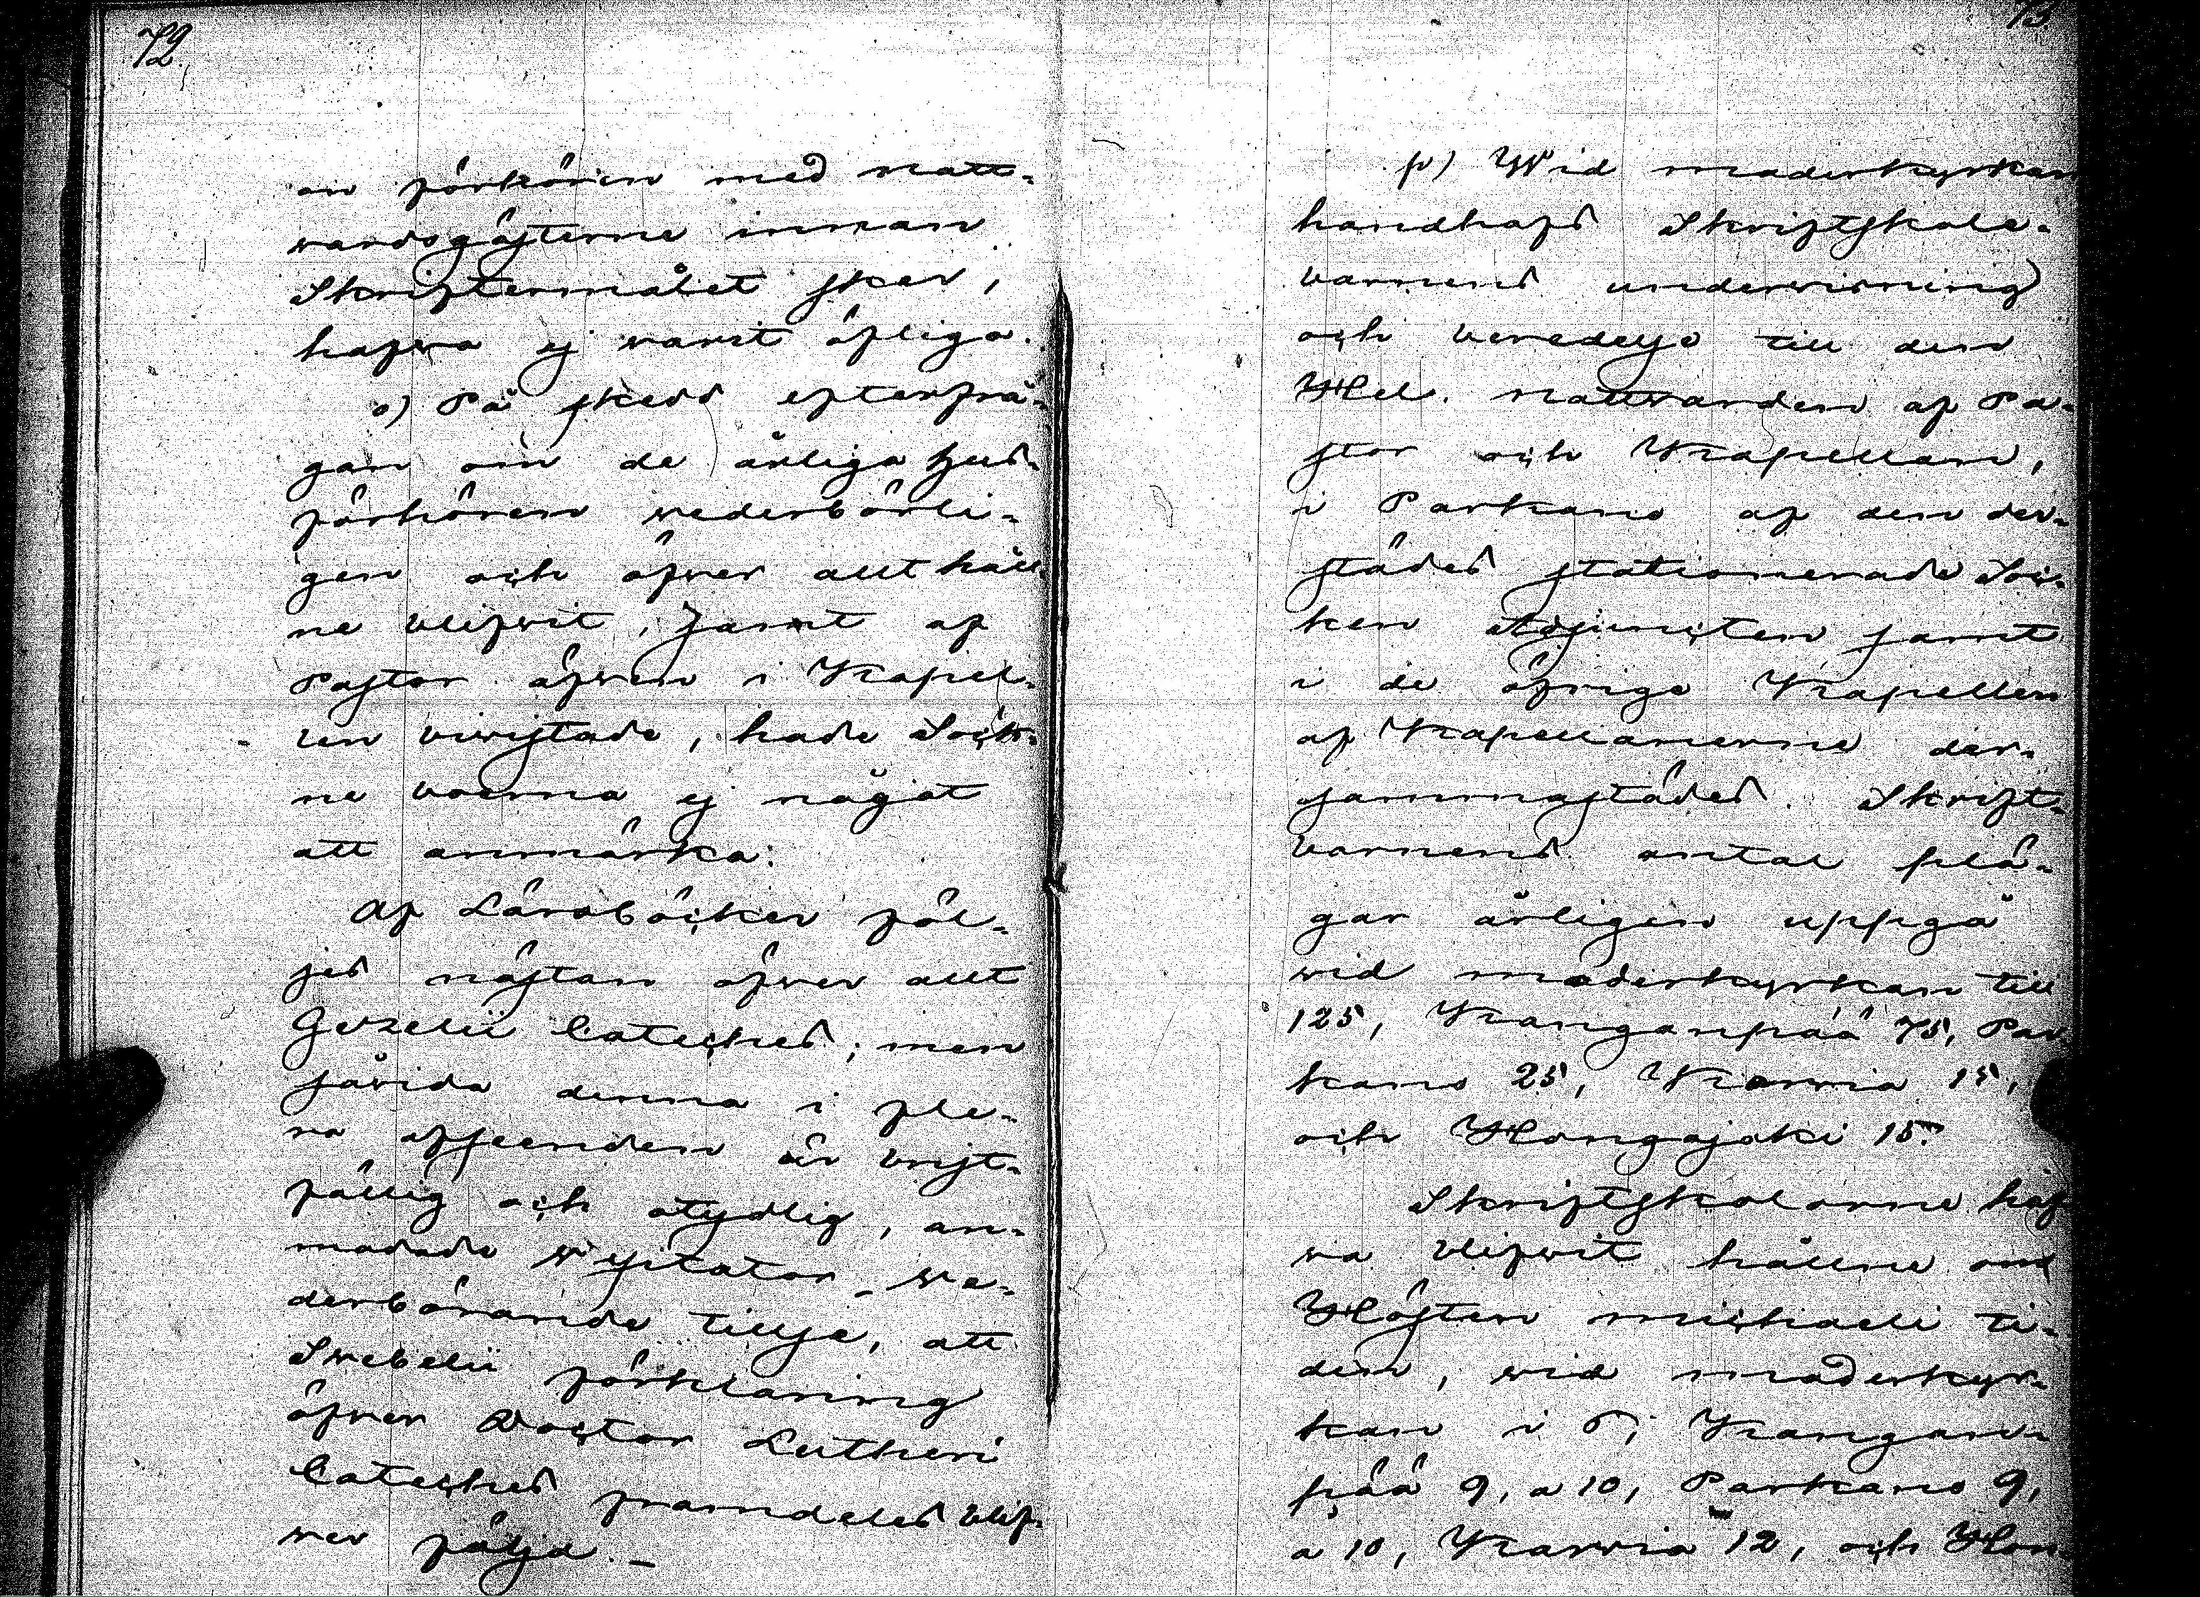 72.
on förhören med natt-
vardsgästerne innan
Skriftermålet sker,
hafwa ej varit öfliga.
o) På skedd efterfrå-
gan om de årliga hus-
förhören wederbörli-
gen och öfwer allt håll-
ne blifwit, samt af
Pastor äfwen i Kapel-
len biwistade, hade Sock-
ne boerna ej något
att anmärka.
Af Läroböcker föl-
jes nästan öfwer allt
Gezelii Cateches; men
såvida denna i fle-
ra afseenden är brist-
fällig och otydlig, an-
modade Visitator we-
derbörande tillse, att
Swebelii förklaring
öfwer Doctor Lutheri
Cateches framdeles blif-
wer följd. —
73.
p) Wid moderkyrkan
handhafs Skriftskole-
barnens underwisning
och beredelse till den
Hel. nattvarden af Pa-
stor och Kapellan,
i Parkano af den der-
städes stationerade Soc-
ken adjuncten samt
i de öfrige Kapellen
af Kapellanerne der-
sammastädes. Skrift-
barnens antal plä-
gar årligen uppgå
wid moderkyrkan till
125, Kanganpää 75, Par
kano 25, Karvia 15,
och Hongojoki 15.
Skriftskolorne haf
wa blifwit hållne om
Hösten michaeli ti-
den, wid moderkyr-
kan i 6; Kangan-
pää 9, a 10, Parkano 9,
a 10, Karvia 12, och Hon-